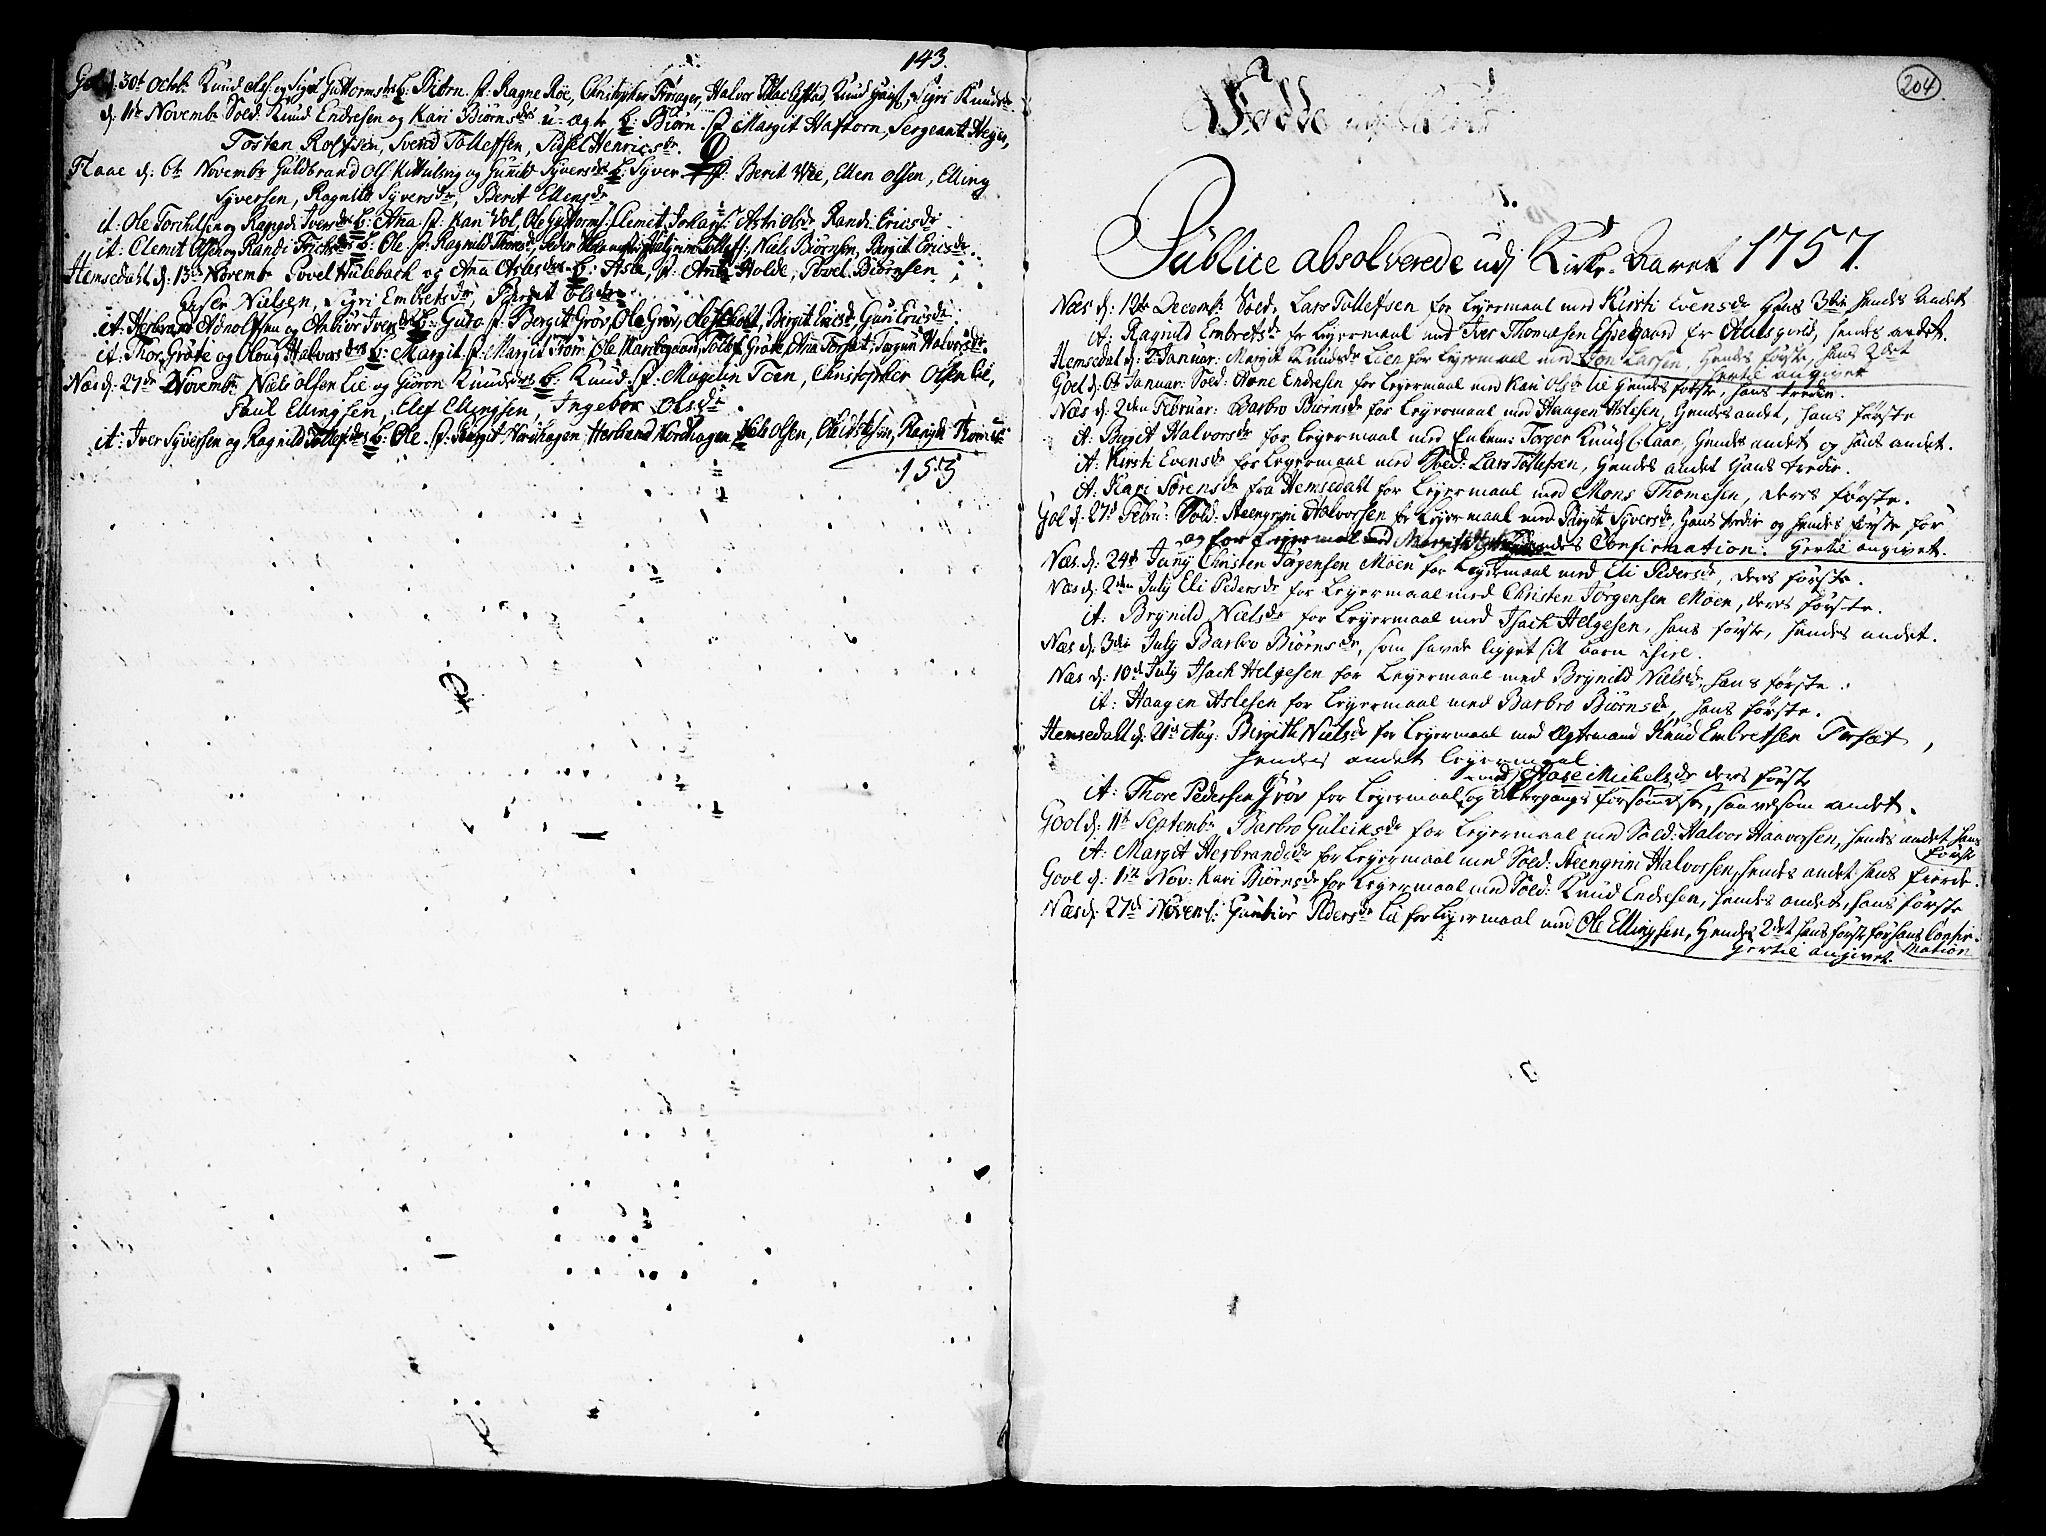 143.
Gol d: 30t Octb: Knud Ols: og Sigri Guttormsdr b: Biörn. f: Ragne Roe, Christopher Trøsager, Halvor Ellefstad, Knud, Sigri Knudsdr
d: 11te Novembr Sold: Knud Endresen og Kari Biörnsdr u-ægte b: Biörn. f: Margit Haftorn, Sergeant Heyer,
Tosten Rolfsen, Svend Tollefsen, Sidsel Henricsdr.
Flaae d: 6te Novembr Guldbrand Ols: Kittilsvig og Gunild Syversdr b: Syver. f: Berit Wee, Ellen Olsen, Elling
Syversen, Ragnild Syversdr, Berit Ellensdr
it: Ole Torchilsen og Rangdi Iversdr b: Ana f: Kari Vol, Ole Guttorms: Clemet Johans: Astri Olsdr Randi Ericsdr
it: Clemet Olsen og Randi Erichsdr b: Ole. f: Ragnild Niels Biörnsen, Bergit Ericsdr.
Hemsedahl d: 13de Novembr Povel Hulebach og Ana Aslesdr b: Asle, f: Ana Holde, Povel Biörnsen
Nielsen, Sigri Embretsdr, Bergit Olsdr
it: Herbrand Adnolfsen og Anbiör Iversdr b: Guro f: Bergit Gröv, Ole Gröv, Birgit Ericsdr Guri Ericsdr
it: Thor Gröte og Oloug Halvorsdr b: Margit f: Margit Trøm Ole Markegaard, Tollef Gröte, Ana Torset, Jøgun Halvorsdr
Næs d: 27de Novembr Niels Olsen Lie og Giöron Knudsdr b: Knud f: Magelin Toen, Christopher Olsen Lie,
Paul Ellingsen, Elef Ellingsen, Ingebor Olsdr.
it: Iver Syversen og Ragnild Tollefsdr b: Ole. f: Bergit Nordhagen Herbrand Nordhagen Niels Olsen, Ole, Rangdi
153
204
1.
Publice absolverede udj Kirke-Aaret 1757.
Næs d: 12te Decemb: Sold. Lars Tollefsen for Leyermaal med Kirsti Evensdr Hans 3die hendes Andet
it: Ragnild Embretsdr for Leyermaal med Iver Thomesen Essegaard fr Aals gield, hendes andet.
Hemsedal d: 2 Januar: Margit Knudsdr Lien for Leyermaal med Joen Larsen, Hendes første, Hans 2det
hertil angivet
Goel d: 6te Januar: Sold: Arne Endresen for Leyermaal med Kari Olsdr Lie Hendes første, hans tredie.
Næs d: 2den Februar: Barbro Biörnsdr for Leyermaal med Haagen Aslesen, Hendes andet, hans første
it: Birgit Halvorsdr for Leyermaal med Enkem: Torger Knuds: Claar, Hendes andet og hans andet.
it: Kirsti Evensdr for Leyermaal med Sold: Lars Tollefsen, Hendes andet Hans tredie.
it: Kari Sörensdr fra Hemsedahl for Leyermaal med Mons Thomesen, deres første.
Gol d: 27de Febru: Sold: Steengrim Halvorsen for Leyermaal med Birgit Syversdr, Hans tredie og hendes første for
og for Leyermaal med Margit hendes Confirmation. Hertil angivet.
Næs d: 24de Juny Christen Jörgensen Moen for Leyermaal med Eli Pedersdr, deres første.
Næs d: 2den July Eli Pedersdr for Leyermaal med Christen Jörgensen Moen, deres første.
it: Brynild Nielsdr for Leyermaal med Isach Helgesen, hans første, hendes andet.
Næs d: 3die July Barbro Biörnsdr, som havde ligget sit barn ihiel.
Næs d: 10de July Isach Helgesen for Leyermaal med Brynild Nielsdr, hans første.
it: Haagen Aslesen for Leyermaal med Barbro Biörnsdr, hans første.
Hemsedahl d: 21de Aug: Birgith Nielsdr for Leyermaal med Ægtemand Knud Embretsen Torset,
hendes andet leyermaal
med Aase Michelsdr deres første
it: Thore Pedersen Gröv for Leyermaal og Altergangs forsømmelse, saavelsom andet.
Gool d: 11te Septembr Barbro Guleiksdr for Leyermaal med Sold: Halvor Haavorsen, hendes andet, hans
første
it: Margit Herbrandsdr for Leyermaal med Sold: Steengrim Halvorsen, hendes andet: hans fierde.
Govl d: 11te Nov: Kari Biörnsdr for Leyermaal med Sold: Knud Endresen, hendes andet, hans første
Næs d: 27de Novemb: Gunbiör Pedersdr Lie for Leyermaal med Ole Ellingsen, Hendes 2det hans først for hans Confir-
mation
hertil angivet.